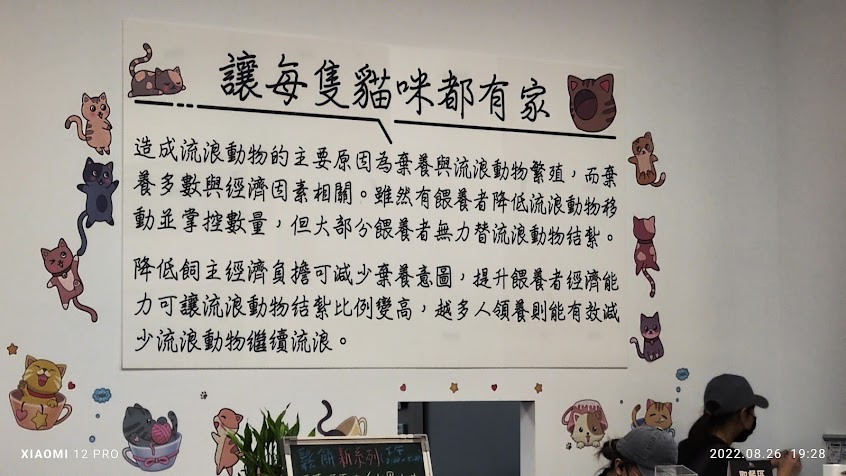 讓每隻貓咪都有家
造成流浪動物的主要原因為棄養與流浪動物繁殖，而棄
養多數與經濟因素相關。雖然有餵養者降低流浪動物移
動並掌控數量，但大部分餵養者無力替流浪動物結紮。
降低飼主經濟負擔可減少棄養意圖，提升餵養者經濟能
力可讓流浪動物結紮比例變高，越多人領養則能有效減
少流浪動物繼續流浪。
鬆餅新系列
XIAOMI 12 PRO
2022.08.26 19:28
取餐區